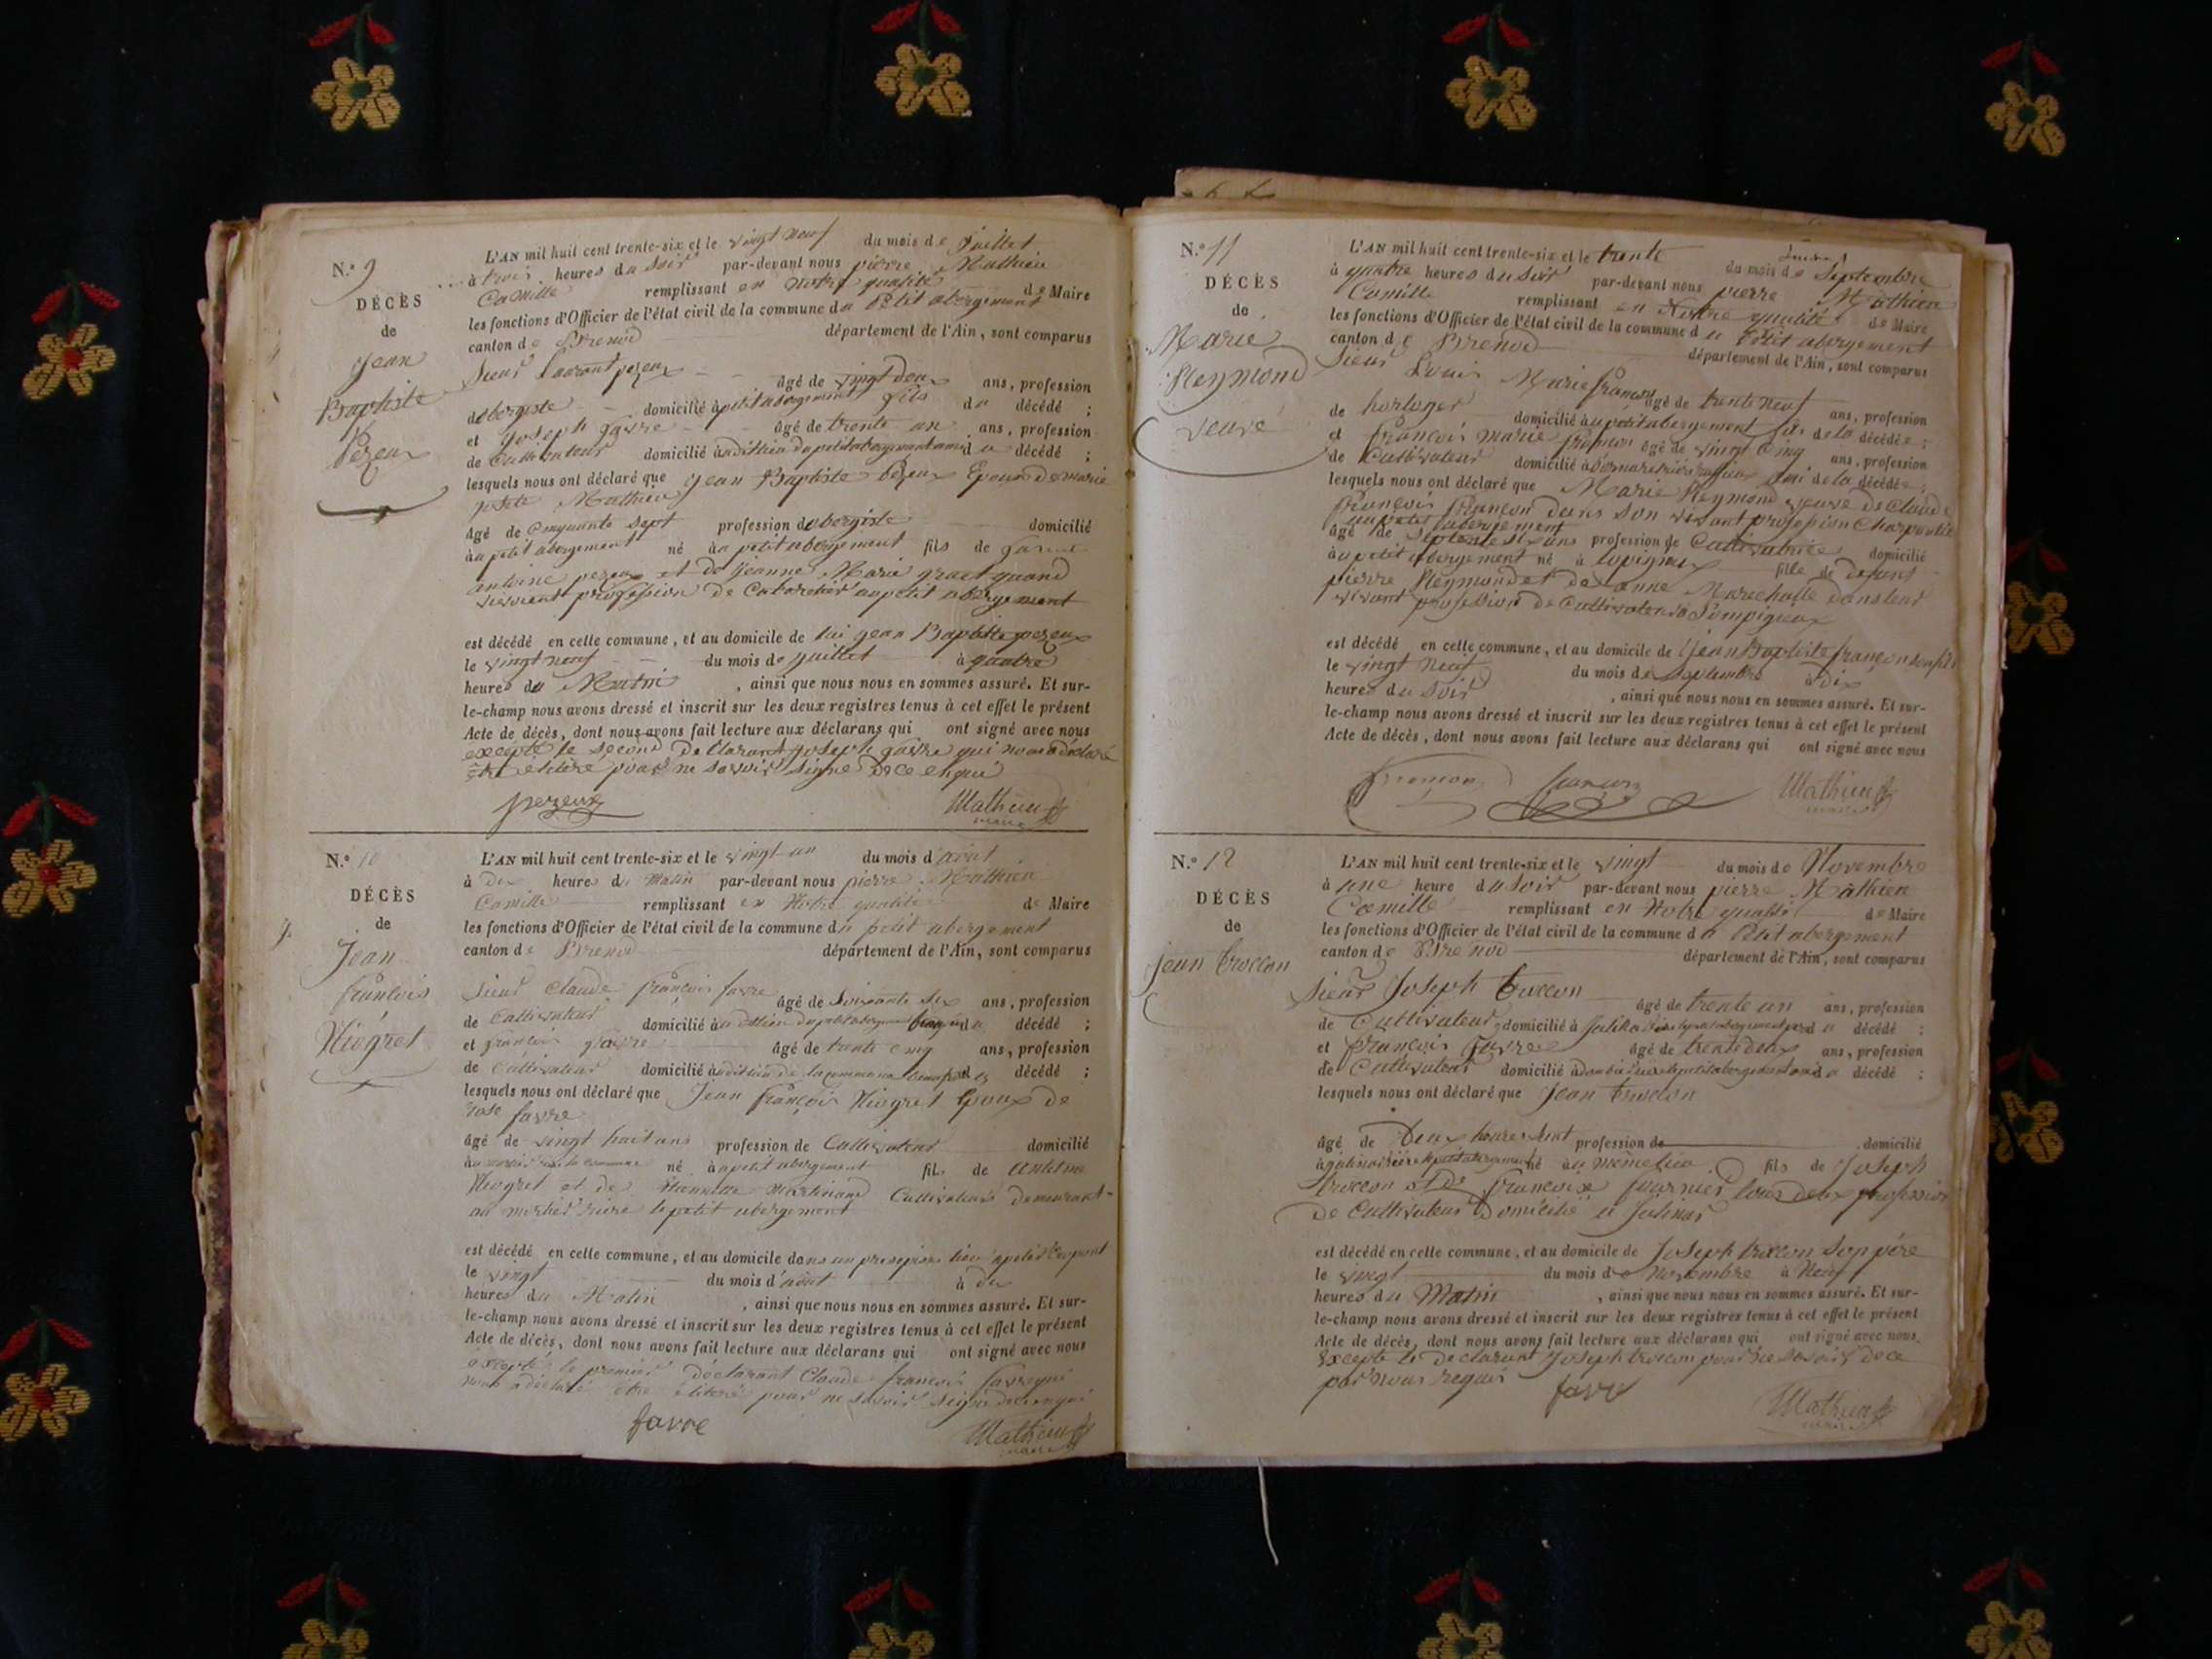 N.º 9
DÉCÈS
de
Jean
Baptiste
Pezeux
L'AN mil huit cent trente-six et le vingt neuf du mois de juillet
à trois heures du soir par-devant nous pierre Mathieu
Camille remplissant en notre qualité de Maire
les fonctions d'Officier de l'état civil de la commune du Petit abergement
canton de Brenod département de l'Ain, sont comparus
Sieur Laurant pezeux âgé de vingt deux ans, profession
d'obergiste domicilié à petit abergement fils du décédé ;
et joseph gavre âgé de trente un ans, profession
de Cultivateur domicilié décédé ;
lesquels nous ont déclaré que jean Baptiste Pezeux Epoux de marie
Mathieu
âgé de Cinquante sept profession d'obergiste domicilié
au petit abergement né au petit abergement fils de
antoine pezeux et de jeanne Marie quand
vivient profession de Cabaretier au petit abergement
est décédé en cette commune, et au domicile de lui jean Baptiste pezeux
le vingt neuf du mois de juillet à quatre
heures du Matin , ainsi que nous nous en sommes assuré. Et sur-
le-champ nous avons dressé et inscrit sur les deux registres tenus à cet effet le présent
Acte de décès, dont nous avons fait lecture aux déclarans qui ont signé avec nous
excepté le second Declarant joseph gavre qui nous a déclaré
être élitéré pour ne savoir signé de ce enqui
pezeux Mathieu
maire
N.º 10
DÉCÈS
de
Jean
françois
Niogret
L'AN mil huit cent trente-six et le vingt-un du mois d'août
à dix heures du Matin par-devant nous pierre Mathieu
Camille remplissant en Notre qualité de Maire
les fonctions d'Officier de l'état civil de la commune du petit abergement
canton de Brenod département de l'Ain, sont comparus
Sieur Claude françois favre âgé de Soixante six ans, profession
de Cultivateur domicilié décédé ;
et françois favre âgé de trente cinq ans, profession
de Cultivateur domicilié au dit lieu de la commune décédé ;
lesquels nous ont déclaré que Jean françois Niogret Epoux de
rose favre
âgé de vingt huit ans profession de Cultivateur domicilié
né à petit abergement fils de Antelme
Niogret et de Cultivateurs demeurant
rière le petit abergement
est décédé en cette commune, et au domicile dans un
le vingt du mois d'août à dix
heures du Matin , ainsi que nous nous en sommes assuré. Et sur-
le-champ nous avons dressé et inscrit sur les deux registres tenus à cet effet le présent
Acte de décès, dont nous avons fait lecture aux déclarans qui ont signé avec nous
excepté le premier déclarant Claude françois favre qui
nous a déclaré être élitéré pour ne savoir signé
favre Mathieu
maire
N.º 11
DÉCÈS
de
Marie
Reymond
veuve
L'AN mil huit cent trente-six et le trente du mois de Septembre
à quatre heures du soir par-devant nous pierre Mathieu
Camille remplissant en Notre qualité de Maire
les fonctions d'Officier de l'état civil de la commune du Petit abergement
canton de Brenod département de l'Ain, sont comparus
Sieur Louis Marie françon âgé de trente neuf ans, profession
de horloger domicilié au petit abergement fils de la décédée ;
et françois marie françon âgé de vingt cinq ans, profession
de Cultivateur domicilié à de la décédée ;
lesquels nous ont déclaré que Marie Reymond veuve de Claude
françois françon dans son vivant profession Charpentier
au petit abergement
âgé de Septente six ans profession de Cultivatrice domicilié
au petit abergement né à Lupigneux fille de defunt
pierre Reymond et de anne Marechalle dans leur
vivant profession de Cultivateurs
est décédé en cette commune, et au domicile de jean Baptiste françon son fils
le vingt neuf du mois de Septembre à dix
heures du Soir , ainsi que nous nous en sommes assuré. Et sur-
le-champ nous avons dressé et inscrit sur les deux registres tenus à cet effet le présent
Acte de décès, dont nous avons fait lecture aux déclarans qui ont signé avec nous
françon françon Mathieu
maire
N.º 12
DÉCÈS
de
jean troccon
L'AN mil huit cent trente-six et le vingt du mois de Novembre
à une heure du Soir par-devant nous pierre Mathieu
Camille remplissant en Notre qualité de Maire
les fonctions d'Officier de l'état civil de la commune du Petit abergement
canton de Brenod département de l'Ain, sont comparus
Sieur Joseph troccon âgé de trente un ans, profession
de Cultivateur domicilié à décédé ;
et françois favre âgé de trente deux ans, profession
de Cultivateur domicilié décédé ;
lesquels nous ont déclaré que Jean troccon
âgé de Deux heures profession de domicilié
né au même lieu fils de Joseph
troccon et de françoise fournier tous deux profession
de Cultivateur domicilié à Jalinas
est décédé en cette commune, et au domicile de Joseph troccon son père
le vingt du mois de Novembre à Neuf
heures du Matin , ainsi que nous nous en sommes assuré. Et sur-
le-champ nous avons dressé et inscrit sur les deux registres tenus à cet effet le présent
Acte de décès, dont nous avons fait lecture aux déclarans qui ont signé avec nous
Excepté le declarant Joseph troccon pour ne savoir de ce
par nous requis favre Mathieu
maire